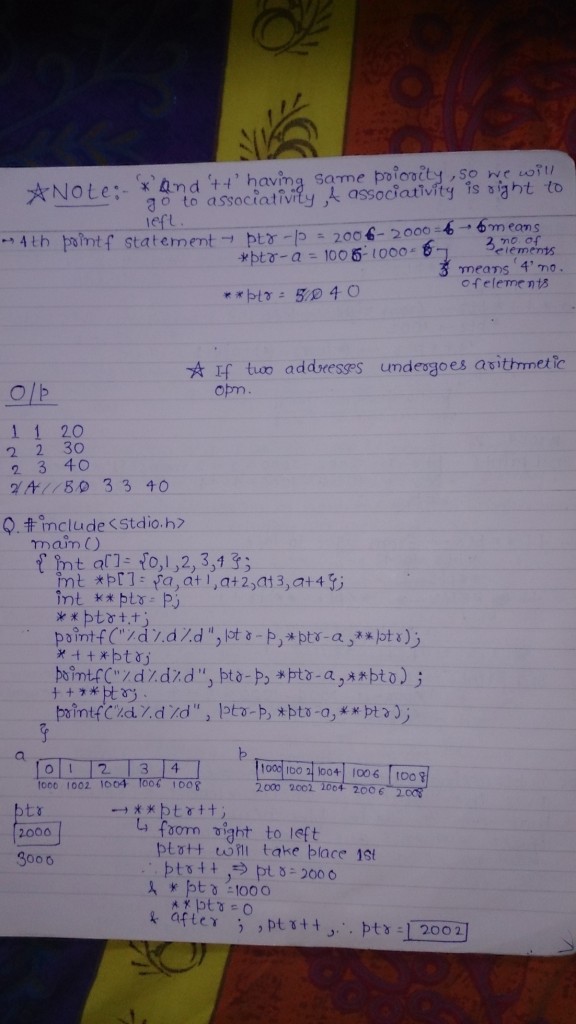 ☆ NOTE:- '*' And '++' having same priority, so we will
go to associativity, & associativity is right to
left.
→ 4th printf statement → ptr-p = 2006-2000=6 → 6 means
3 no. of
elements
*ptr-a = 1006-1000=6
3 means '4' no.
of elements
**ptr = 40
☆ If two addresses undergoes arithmetic
opn.
O/p
1 1 20
2 2 30
2 3 40
3 3 40
Q. #include<stdio.h>
main()
{ int a[]= {0,1,2,3,4};
int *p[]= {a, a+1, a+2, a+3, a+4};
int **ptr= p;
**ptr++;
printf("%d%d%d", ptr-p, *ptr-a, **ptr);
*++*ptr;
printf("%d%d%d", ptr-p, *ptr-a, **ptr);
++**ptr;
printf("%d%d%d", ptr-p, *ptr-a, **ptr);
}
a
0 1 2 3 4
1000 1002 1004 1006 1008
p
1000 1002 1004 1006 1008
2000 2002 2004 2006 2008
ptr
2000
3000
→ **ptr++;
↳ from right to left
ptr++ will take place 1st
∴ ptr++, ⇒ ptr=2000
& *ptr=1000
**ptr=0
& after ; , ptr++, ∴ ptr = 2002